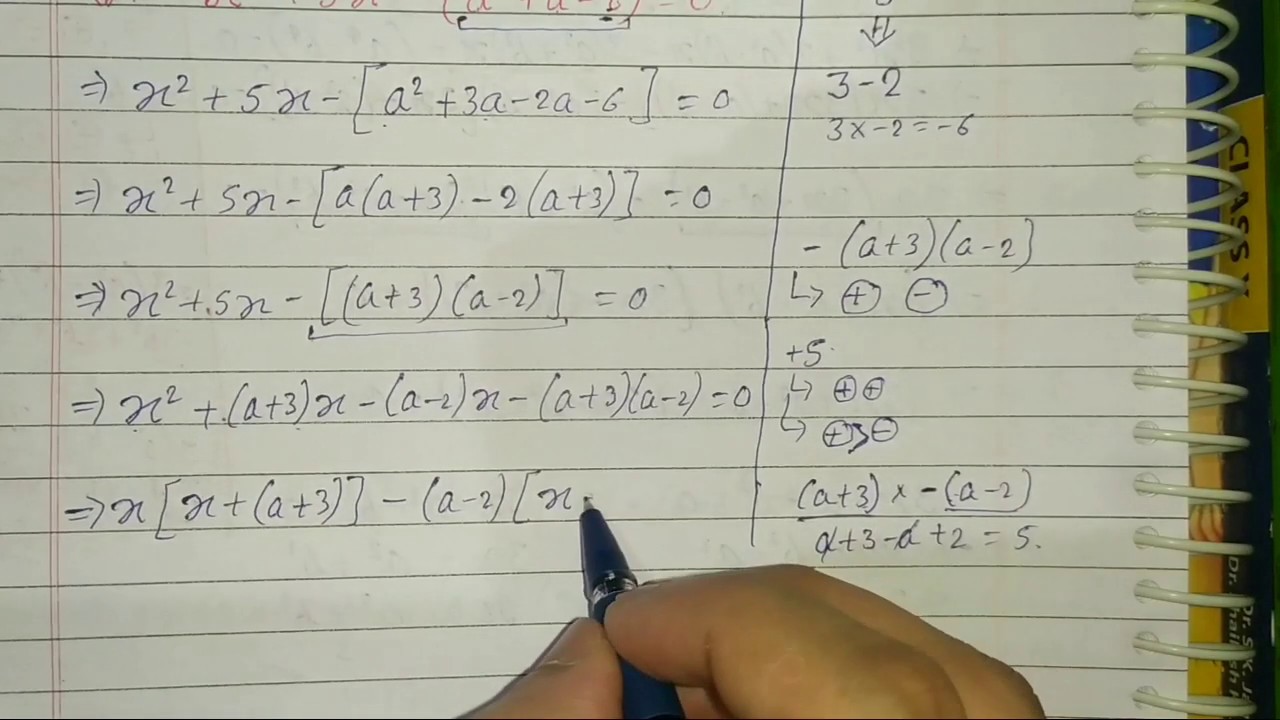 ⇒ x² + 5x - [a² + 3a - 2a - 6] = 0
⇒ x² + 5x - [a(a+3) - 2(a+3)] = 0
⇒ x² + 5x - [(a+3)(a-2)] = 0
⇒ x² + (a+3)x - (a-2)x - (a+3)(a-2) = 0
⇒ x[x + (a+3)] - (a-2)[x
⇓
3 - 2
3 × -2 = -6
- (a+3)(a-2)
↳ ⊕ ⊖
+5
↳ ⊕⊕
↳ ⊕>⊖
(a+3) × -(a-2)
a+3-a+2 = 5.
CLASS X